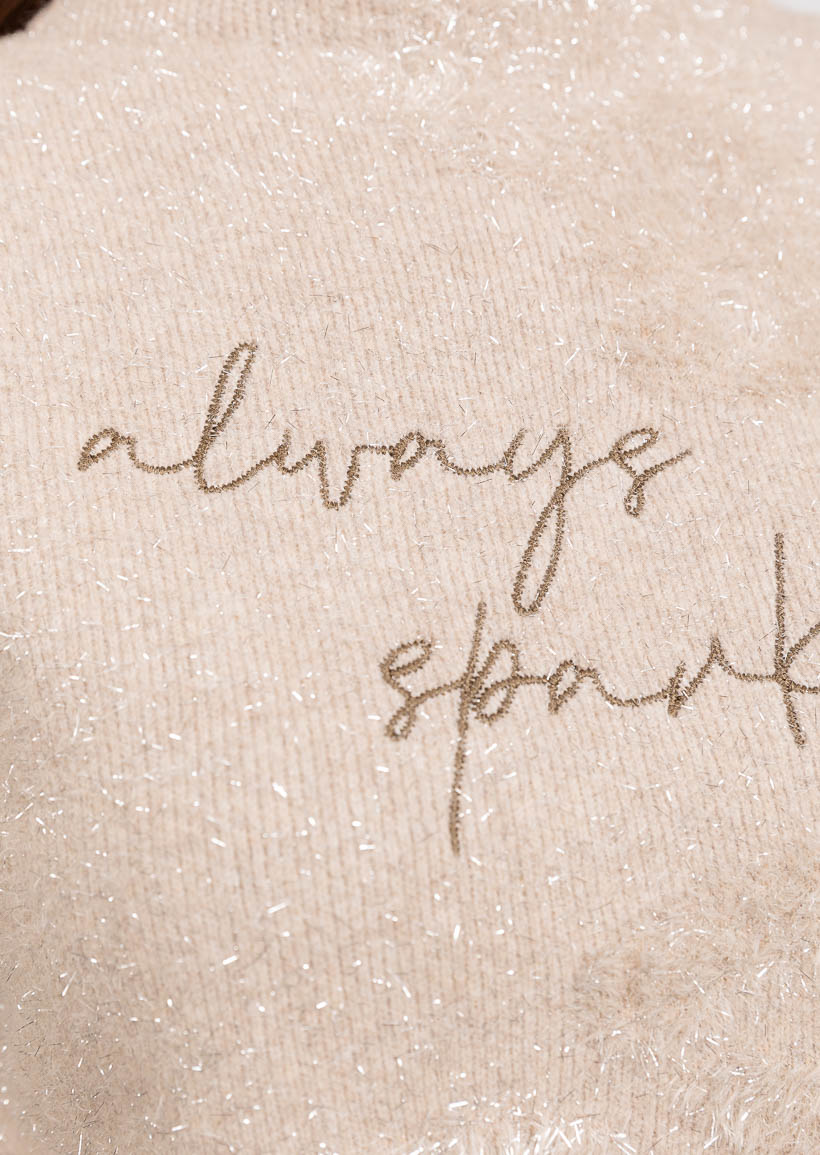 always
spark